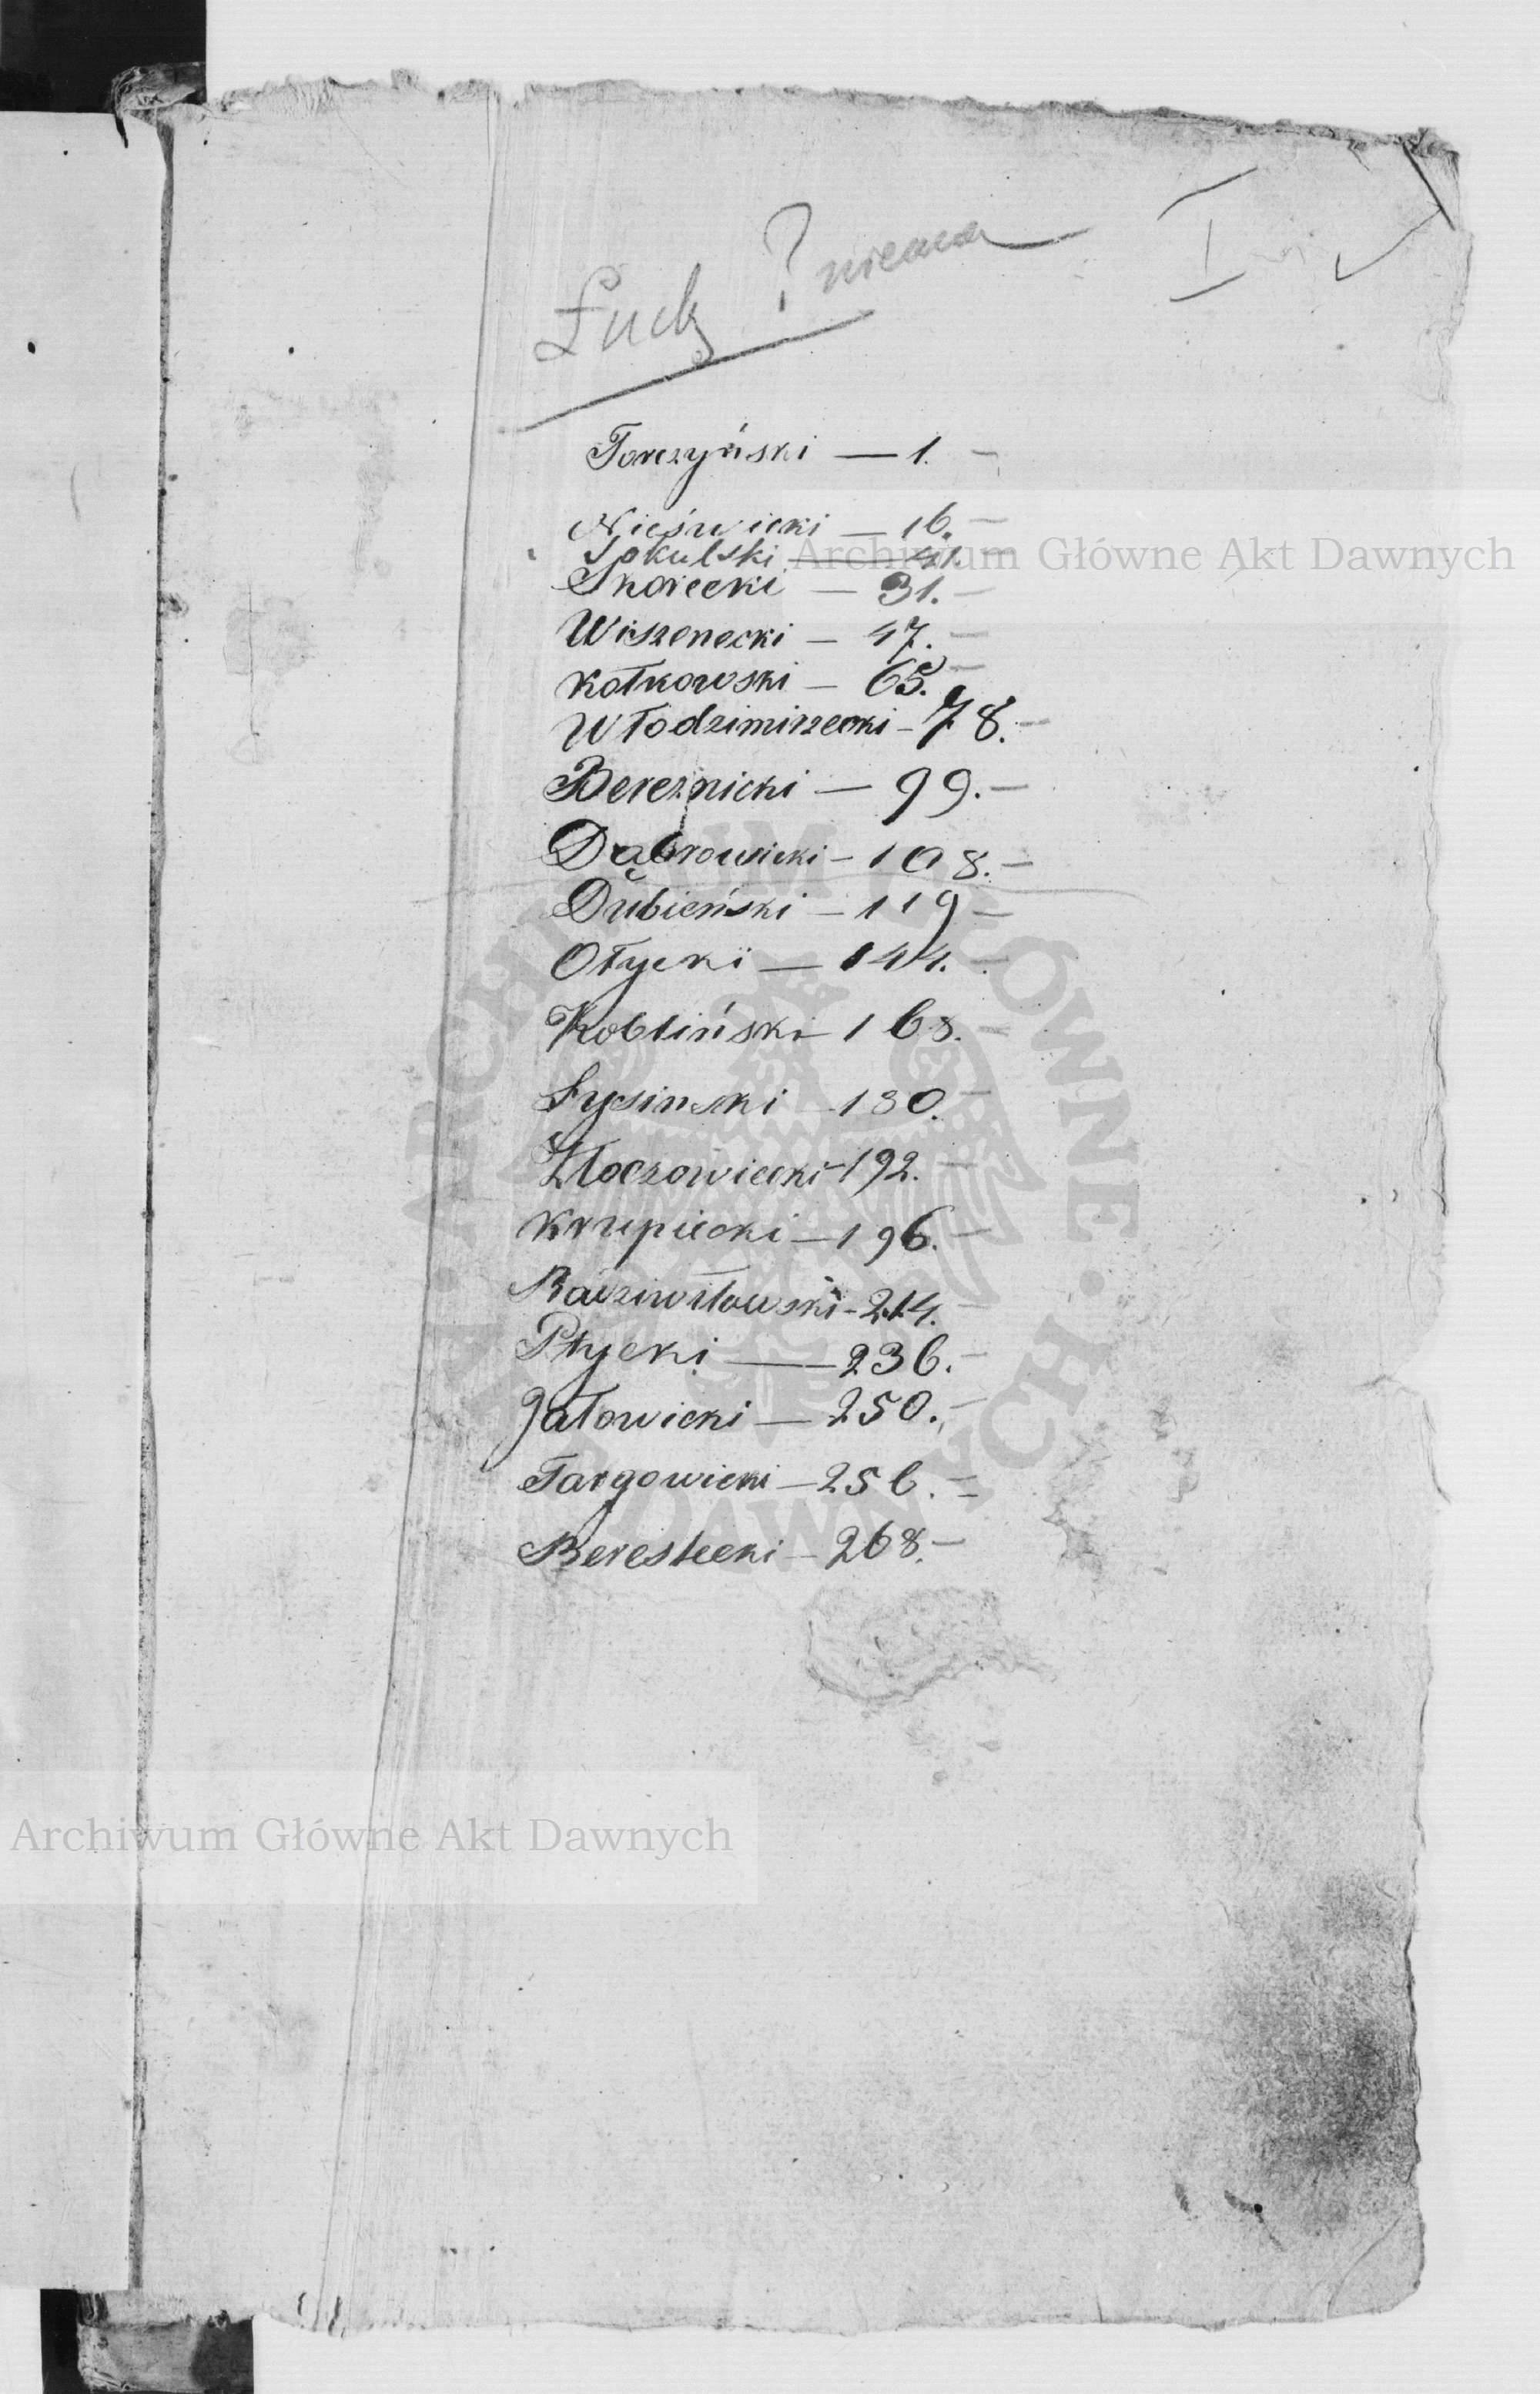 Łuck ? niema I
Torczyński — 1. –
Nieświcki — 16. –
Sokulski — 41. –
Skorecki — 31. –
Wiszenecki — 47. –
Kołkowski — 65. –
Włodzimirzecki – 78. –
Bereznicki — 99. –
Dąbrowicki – 108. –
Dubieński – 119 –
Ołycki — 144. –
Kobliński – 168. –
Łysinski – 180. –
Kłoczowiecki – 192. –
Krupiecki – 196. –
Radziwiłłowski – 214. –
Ptycki — 236. –
Jałowicki — 250. –
Targowicki – 256. –
Berestecki – 268. –
Archiwum Główne Akt Dawnych
Archiwum Główne Akt Dawnych
ARCHIWUM GŁÓWNE AKT DAWNYCH